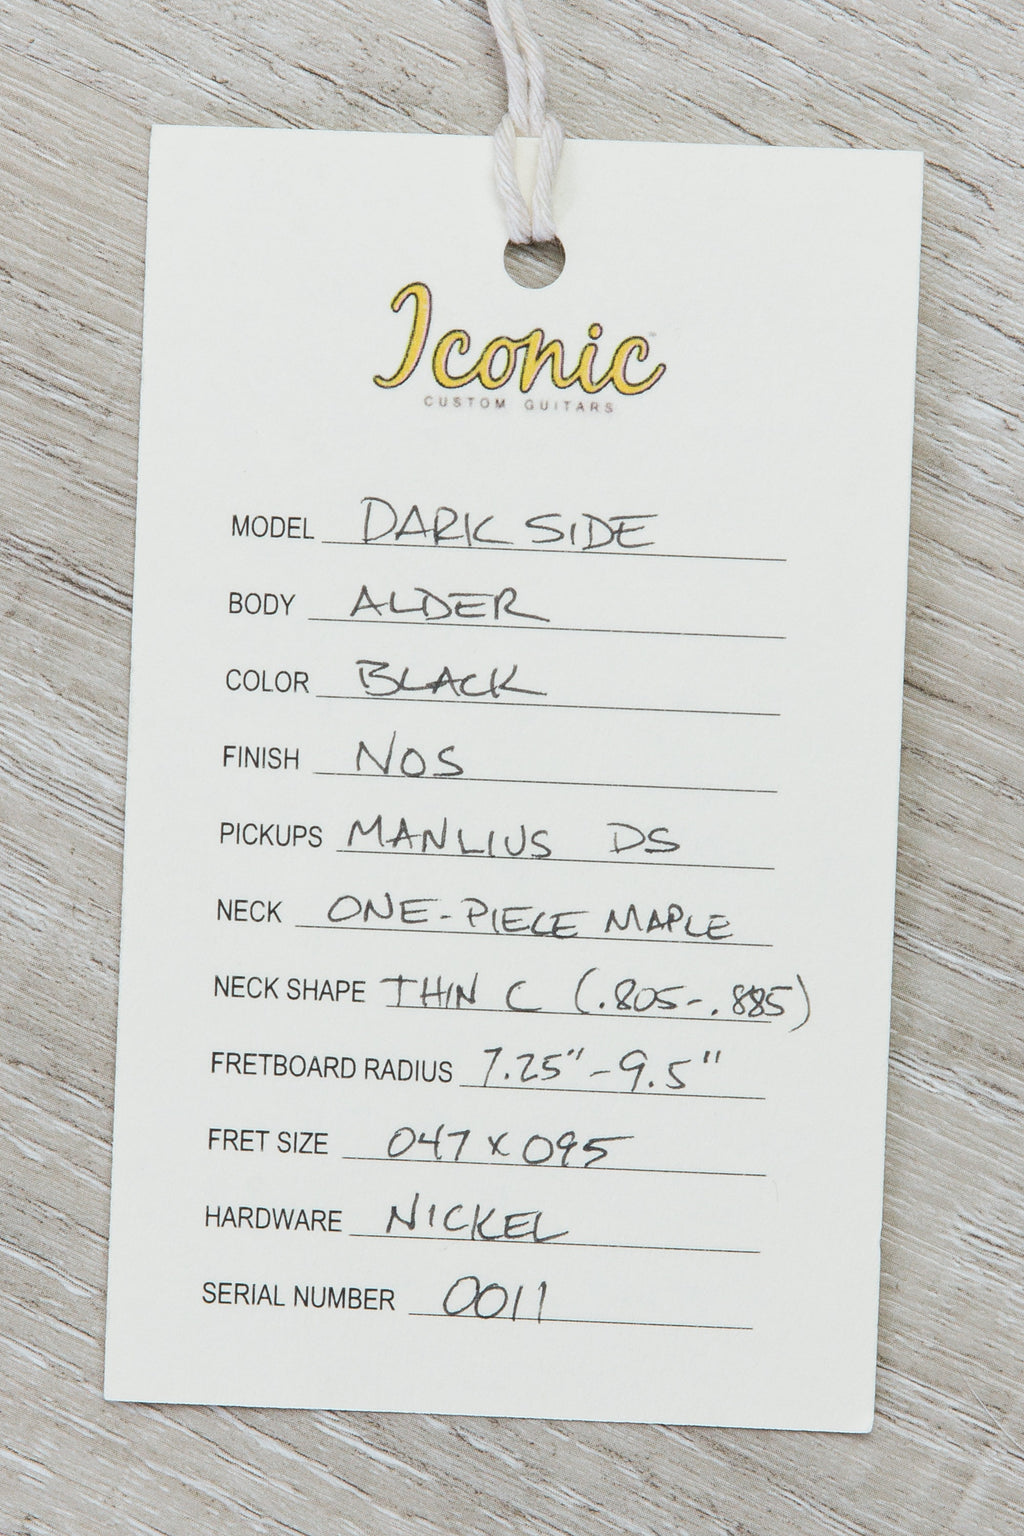 Iconic
CUSTOM GUITARS
MODEL DARK SIDE
BODY ALDER
COLOR BLACK
FINISH NOS
PICKUPS MANLIUS DS
NECK ONE-PIECE MAPLE
NECK SHAPE THIN C (.805-.885)
FRETBOARD RADIUS 7.25"-9.5"
FRET SIZE 047 x 095
HARDWARE NICKEL
SERIAL NUMBER 0011